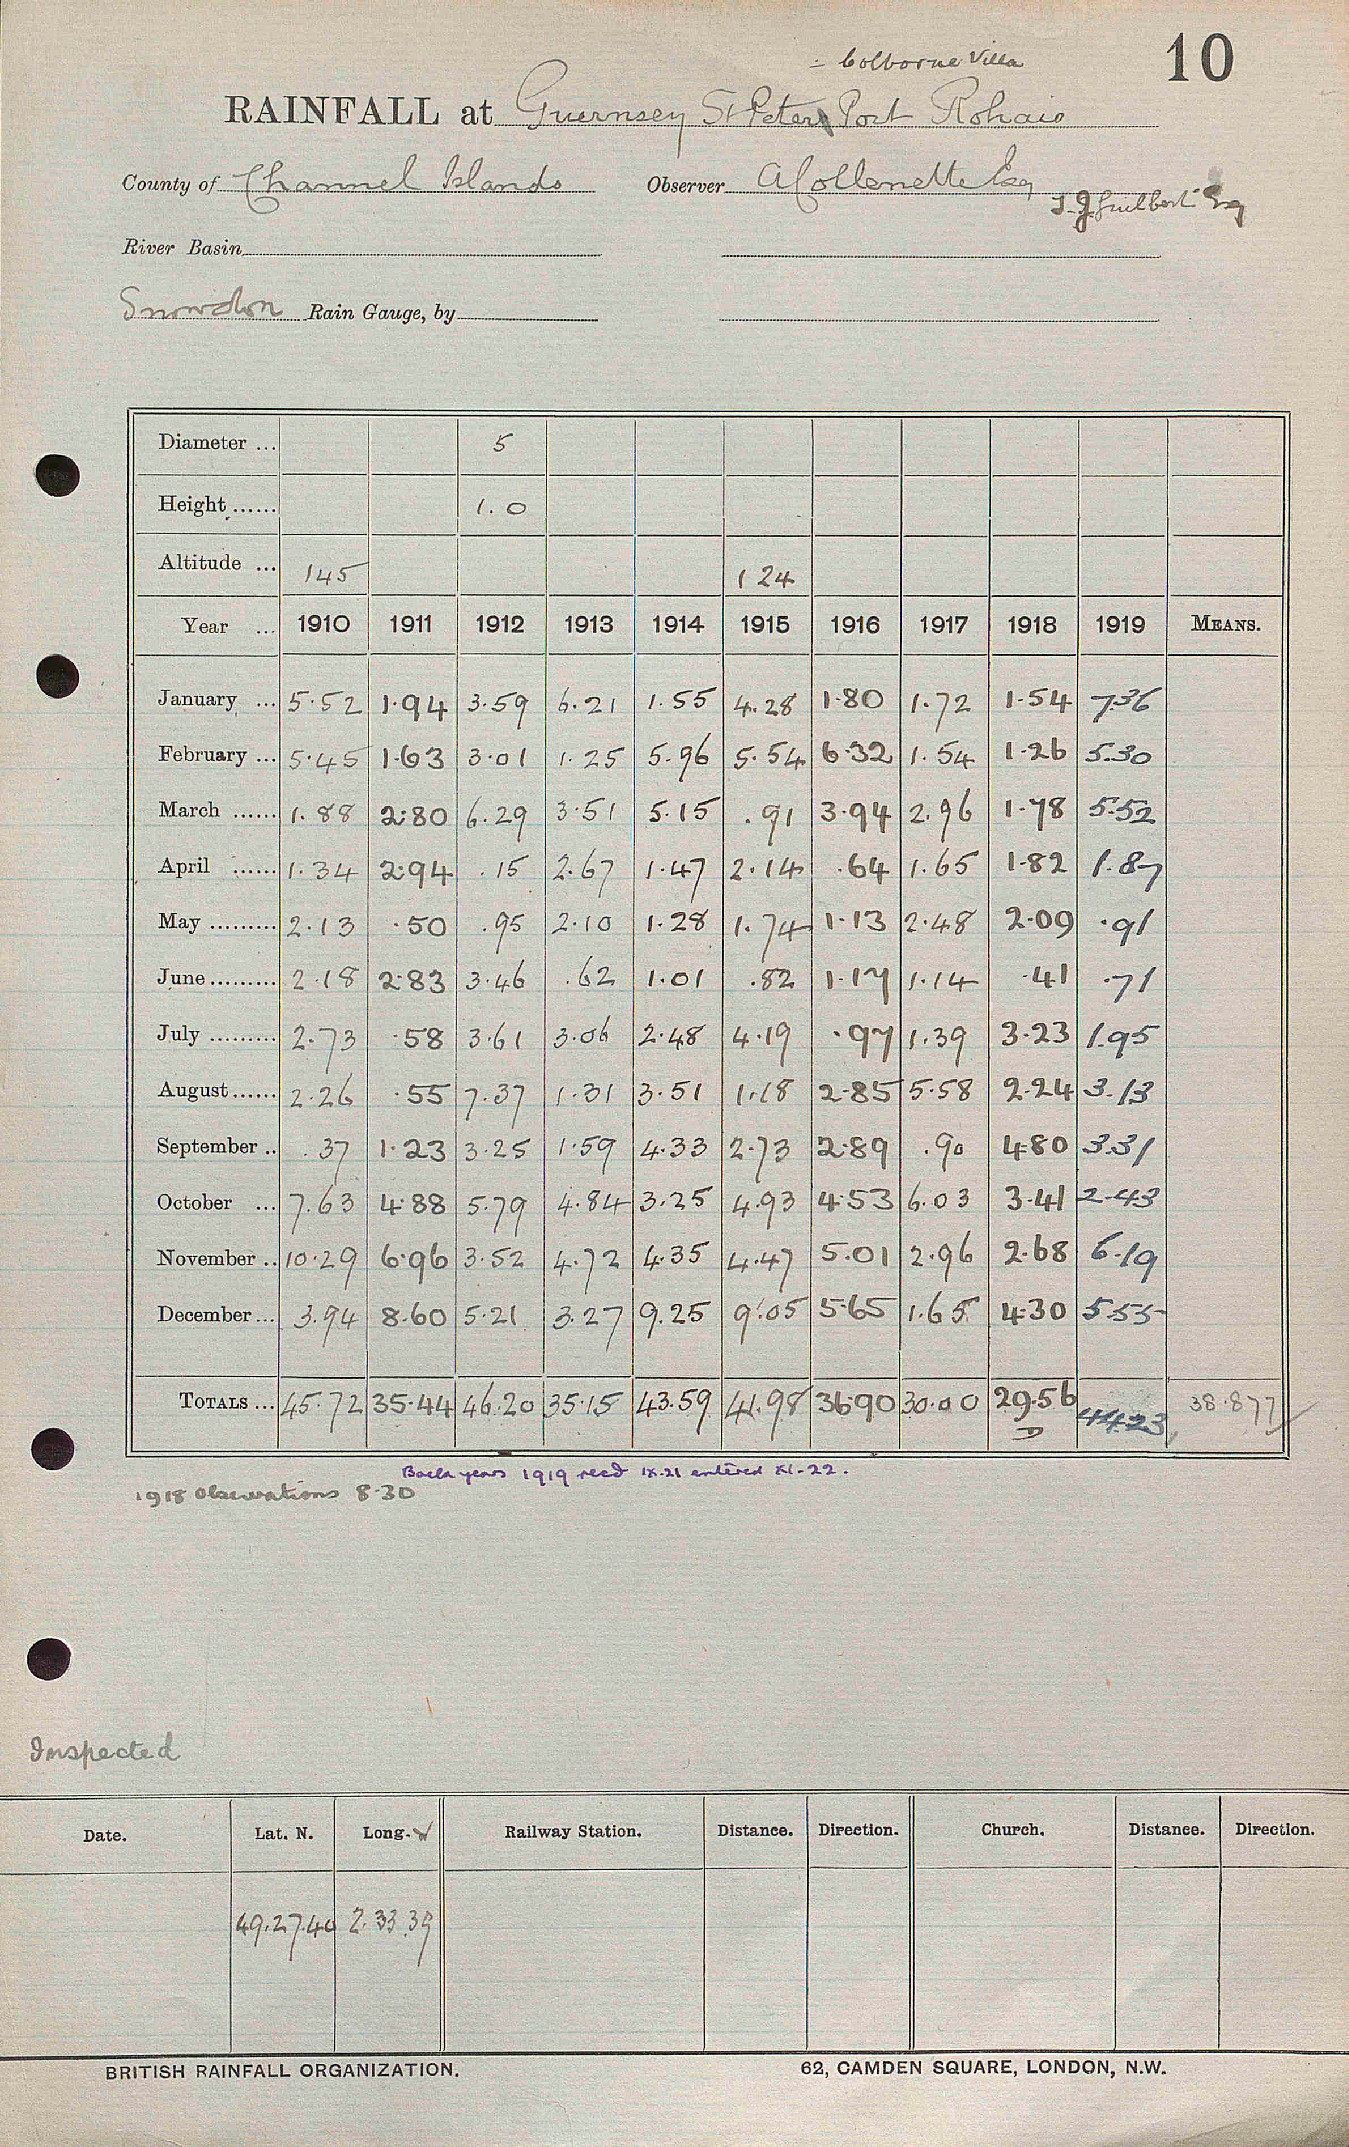 10
- Colborne Villa
RAINFALL at Guernsey St Peter Port Rohais
County of Channel Islands Observer A Collenette Esq
T. J. Guilbert Esq
River Basin
Snowdon Rain Gauge, by
Diameter ... 5
Height ...... 1.0
Altitude ... 145 124
Year ... 1910 1911 1912 1913 1914 1915 1916 1917 1918 1919 MEANS.
January ... 5.52 1.94 3.59 6.21 1.55 4.28 1.80 1.72 1.54 7.36
February ... 5.45 1.63 3.01 1.25 5.96 5.54 6.32 1.54 1.26 5.30
March ...... 1.88 2.80 6.29 3.51 5.15 .91 3.94 2.96 1.78 5.52
April ...... 1.34 2.94 .15 2.67 1.47 2.14 .64 1.65 1.82 1.87
May ......... 2.13 .50 .95 2.10 1.28 1.74 1.13 2.48 2.09 .91
June ......... 2.18 2.83 3.46 .62 1.01 .82 1.17 1.14 .41 .71
July ......... 2.73 .58 3.61 3.06 2.48 4.19 .97 1.39 3.23 1.95
August ...... 2.26 .55 7.37 1.31 3.51 1.18 2.85 5.58 2.24 3.13
September .. .37 1.23 3.25 1.59 4.33 2.73 2.89 .90 4.80 3.31
October ... 7.63 4.88 5.79 4.84 3.25 4.93 4.53 6.03 3.41 2.43
November .. 10.29 6.96 3.52 4.72 4.35 4.47 5.01 2.96 2.68 6.19
December ... 3.94 8.60 5.21 3.27 9.25 9.05 5.65 1.65 4.30 5.55
TOTALS ... 45.72 35.44 46.20 35.15 43.59 41.98 36.90 30.00 29.56 44.23 38.877
D
Back years 1919 recd IX.21 entered XI.22.
1918 Observations 8-30
Inspected
Date. Lat. N. Long. W Railway Station. Distance. Direction. Church. Distance. Direction.
49.27.40 2.33.39
BRITISH RAINFALL ORGANIZATION. 62, CAMDEN SQUARE, LONDON, N.W.